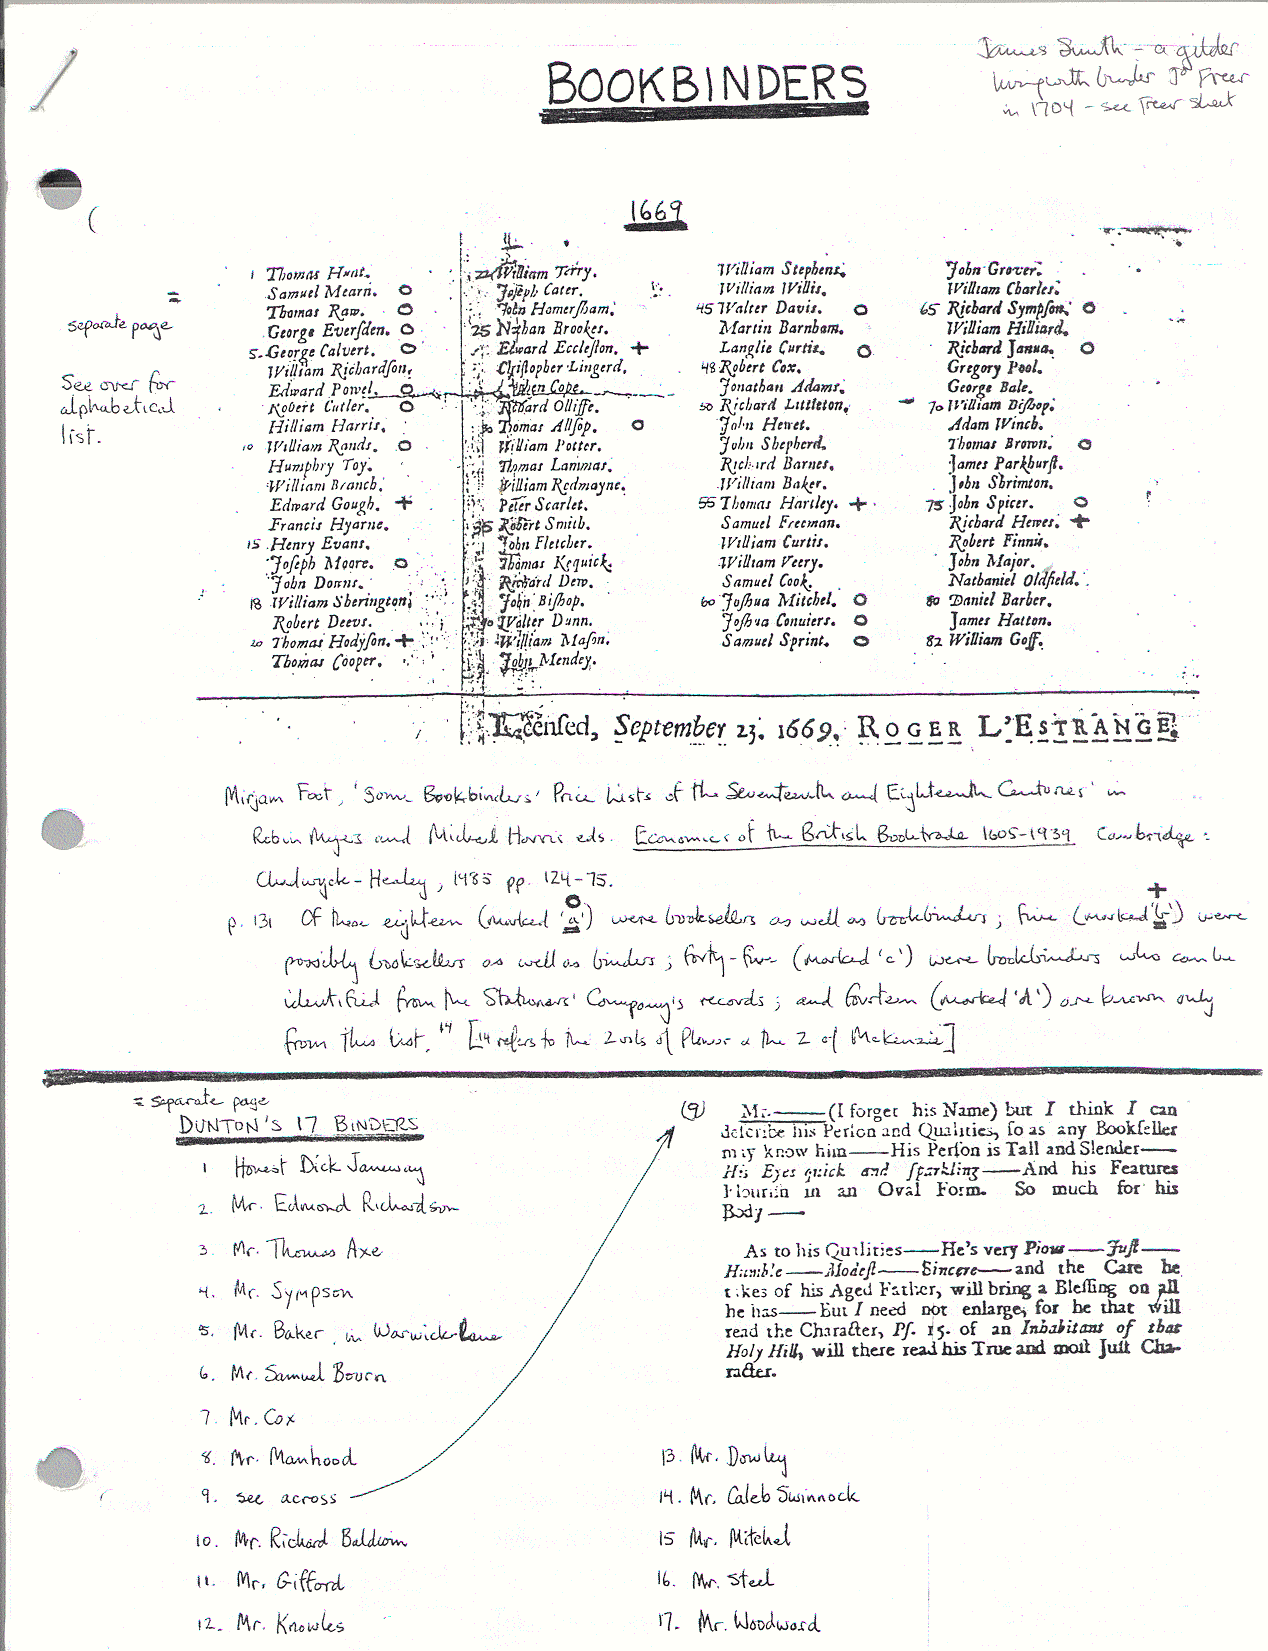 James Smith - a gilder
living with binder Jo Freer
in 1704 - see Freer sheet
BOOKBINDERS
1669
= separate page
See over for
alphabetical
list.
1 Thomas Hunt.
Samuel Mearn. O
Thomas Raw. O
George Everſden. O
5. George Calvert. O
William Richardſon.
Edward Powel. O
Robert Cutler. O
Hilliam Harris.
10 William Rands. O
Humphry Toy.
William Branch.
Edward Gough. +
Francis Hyarne.
15 Henry Evans.
Joſeph Moore. O
John Downs.
18 William Sherington.
Robert Deevs.
20 Thomas Hodyſon. +
Thomas Cooper.
22 William Terry.
Joſeph Cater.
John Homerſham.
25 Nathan Brookes.
Edward Eccleſton. +
Chriſtopher Lingerd.
Cope.
Richard Olliffe.
30 Thomas Allſop. O
William Potter.
Thomas Lammas.
William Redmayne.
Peter Scarlet.
35 Robert Smith.
John Fletcher.
Thomas Kequick.
Richard Dew.
John Biſhop.
40 Walter Dunn.
William Maſon.
John Mendey.
William Stephens.
William Willis.
45 Walter Davis. O
Martin Barnham.
Langlie Curtis. O
48 Robert Cox.
Jonathan Adams.
50 Richard Littleton.
John Hewet.
John Shepherd.
Richard Barnes.
William Baker.
55 Thomas Hartley. +
Samuel Freeman.
William Curtis.
William Veery.
Samuel Cook.
60 Joſhua Mitchel. O
Joſhua Coniers. O
Samuel Sprint. O
John Grover.
William Charles.
65 Richard Sympſon. O
William Hilliard.
Richard Janua. O
Gregory Pool.
George Bale.
70 William Biſhop.
Adam Winch.
Thomas Brown. O
James Parkhurſt.
John Shrimton.
75 John Spicer. O
Richard Hewes. +
Robert Finnis.
John Major.
Nathaniel Oldfield.
80 Daniel Barber.
James Hatton.
82 William Goff.
Licenſed, September 23. 1669. ROGER L'ESTRANGE.
Mirjam Foot, 'Some Bookbinders' Price Lists of the Seventeenth and Eighteenth Centuries' in
Robin Myers and Michael Harris eds. Economics of the British Booktrade 1605-1939 Cambridge:
Chadwyck-Healey, 1985 pp. 124-75.
O +
p. 131 Of these eighteen (marked 'a') were booksellers as well as bookbinders; five (marked 'b') were
possibly booksellers as well as binders; forty-five (marked 'c') were bookbinders who can be
identified from the Stationers' Company's records; and fourteen (marked 'd') are known only
from this list.14 [14 refers to the 2 vols of Plomer & the 2 of McKenzie]
= separate page
DUNTON'S 17 BINDERS
1 Honest Dick Janeway
2. Mr. Edmond Richardson
3. Mr. Thomas Axe
4. Mr. Sympson
5. Mr. Baker in Warwick-Lane
6. Mr. Samuel Bourn
7. Mr. Cox
8. Mr. Manhood
9. see across
10. Mr. Richard Baldwin
11. Mr. Gifford
12. Mr. Knowles
(9) Mr.——(I forget his Name) but I think I can
deſcribe his Perſon and Qualities, ſo as any Bookſeller
may know him——His Perſon is Tall and Slender——
His Eyes quick and ſparkling——And his Features
Flouriſh in an Oval Form. So much for his
Body——
As to his Qualities——He's very Pious——Juſt——
Humble——Modeſt——Sincere——and the Care he
takes of his Aged Father, will bring a Bleſſing on all
he has——But I need not enlarge, for he that will
read the Character, Pſ. 15. of an Inhabitant of that
Holy Hill, will there read his True and moſt Juſt Cha-
racter.
13. Mr. Dowley
14. Mr. Caleb Swinnock
15 Mr. Mitchel
16. Mr. Steel
17. Mr. Woodward